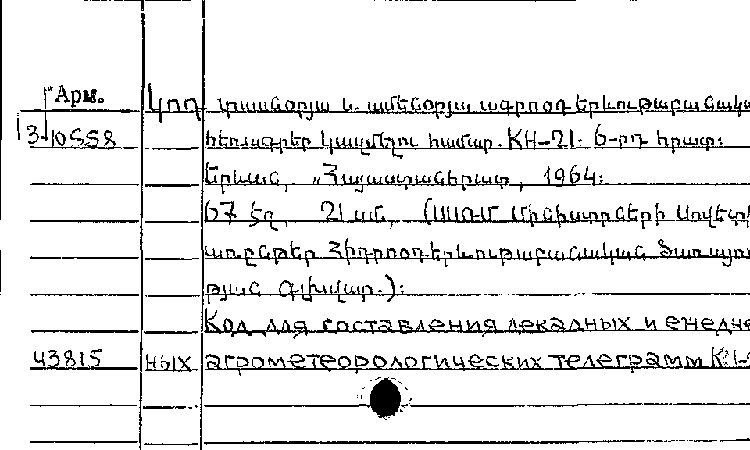 Арм.
Կոդ տասնօրյա և ամենօրյա ագրոօդերևութաբանակա
3-10558 հեռագրեր կազմելու համար. КН-21. 6-րդ հրատ:
Երևան, „Հայպետհրատ", 1964:
67 էջ, 21 սմ, (ՍՍՌՄ Մինիստրների Սովետի
առընթեր Հիդրոօդերևութաբանական Ծառայու
թյան Գլխավար.):
Код для составления декадных и ежедне
43815 ных агрометеорологических телеграмм КН-